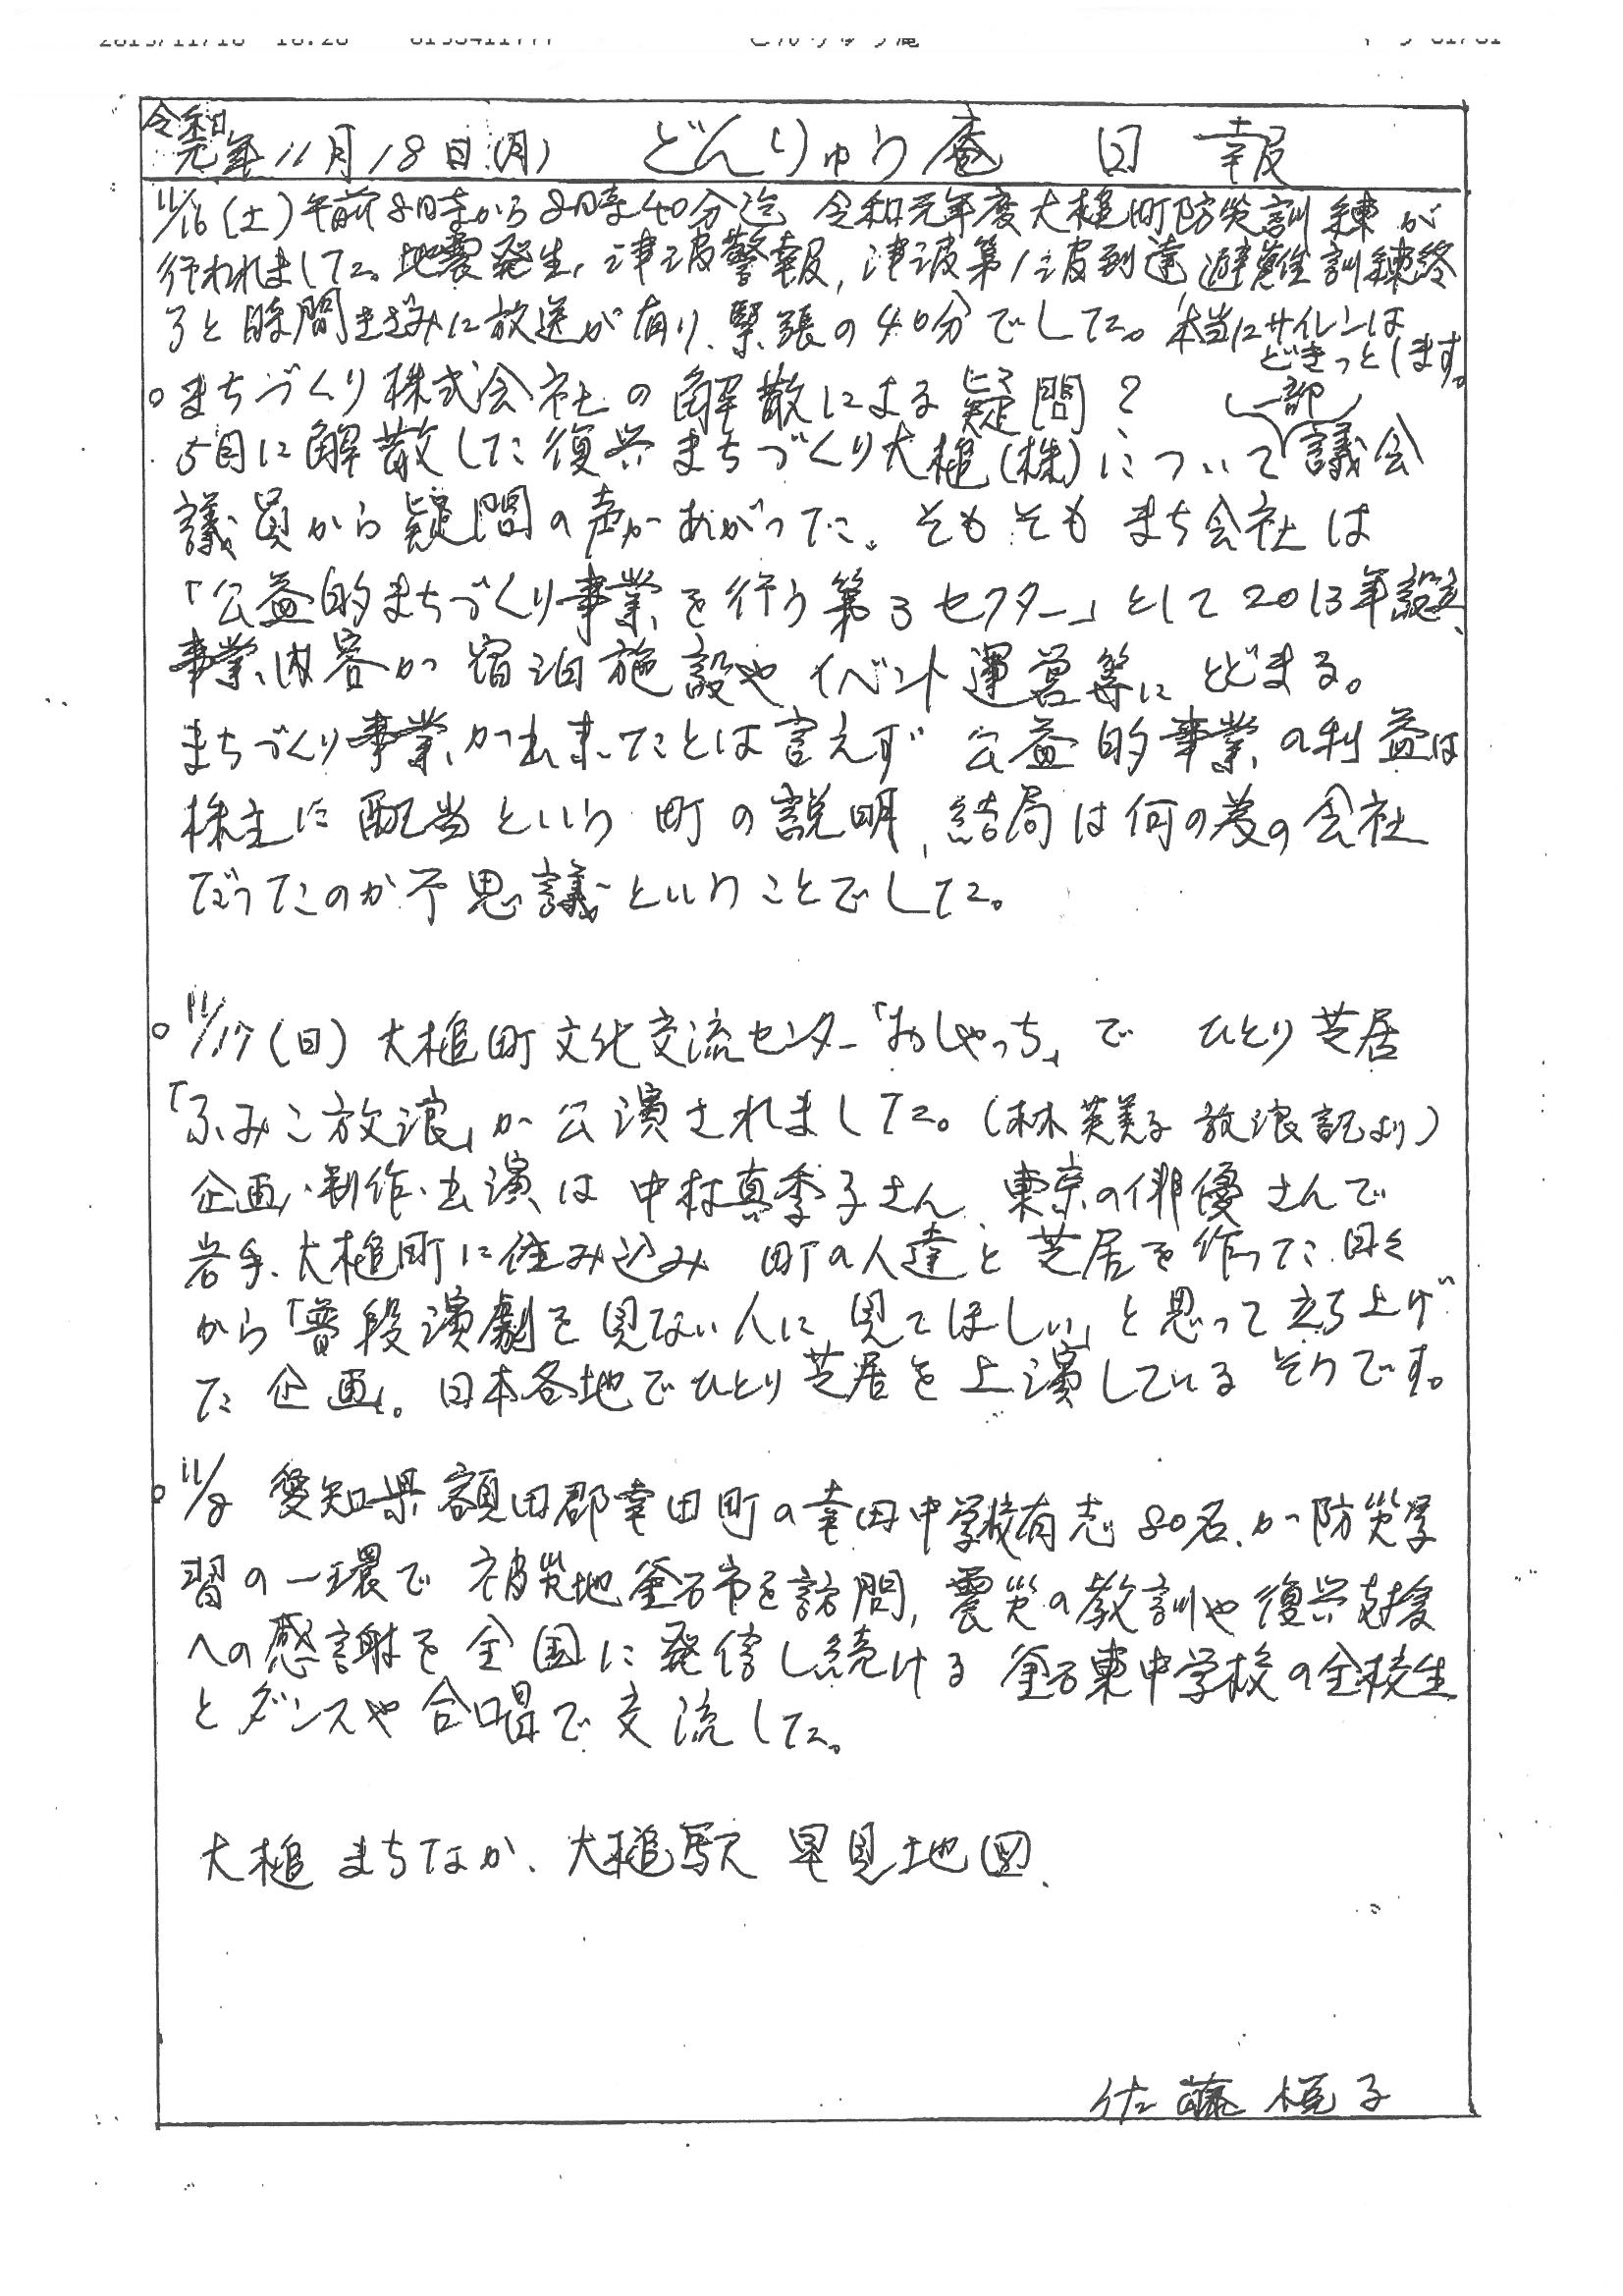 令和元年11月18日(月) どんりゅう庵 日報
11/16(土)午前8時から8時40分迄 令和元年度大槌町防災訓練が
行われました。地震発生、津波警報、津波第1波到達 避難訓練終
了と時間きざみに放送が有り、緊張の40分でした。本当にサイレンは
どきっとします。
○まちづくり株式会社の解散による疑問?
5月に解散した復興まちづくり大槌(株)について(一部)議会
議員から疑問の声があがった。そもそもまち会社は
「公益的まちづくり事業を行う第3セクター」として2013年設立、
事業内容が宿泊施設やイベント運営等にとどまる。
まちづくり事業が出来たとは言えず 公益的事業の利益は
株主に配当という 町の説明、結局は何の為の会社
だったのか不思議ということでした。
○11/17(日)大槌町文化交流センター「おしゃっち」で ひとり芝居
「ふみこ放浪」が公演されました。(林芙美子 放浪記より)
企画、制作、出演は 中村真季子さん、東京の俳優さんで
岩手、大槌町に住み込み 町の人達と芝居を作った日々
から「普段演劇を見ない人に見てほしい」と思って立ち上げ
た企画。日本各地でひとり芝居を上演しているそうです。
○11/8 愛知県額田郡幸田町の幸田中学校有志80名が防災学
習の一環で 被災地釜石市を訪問、震災の教訓や復興支援
への感謝を全国に発信し続ける 釜石東中学校の全校生
とダンスや合唱で交流した。
大槌まちなか、大槌駅 早見地図、
佐藤悦子